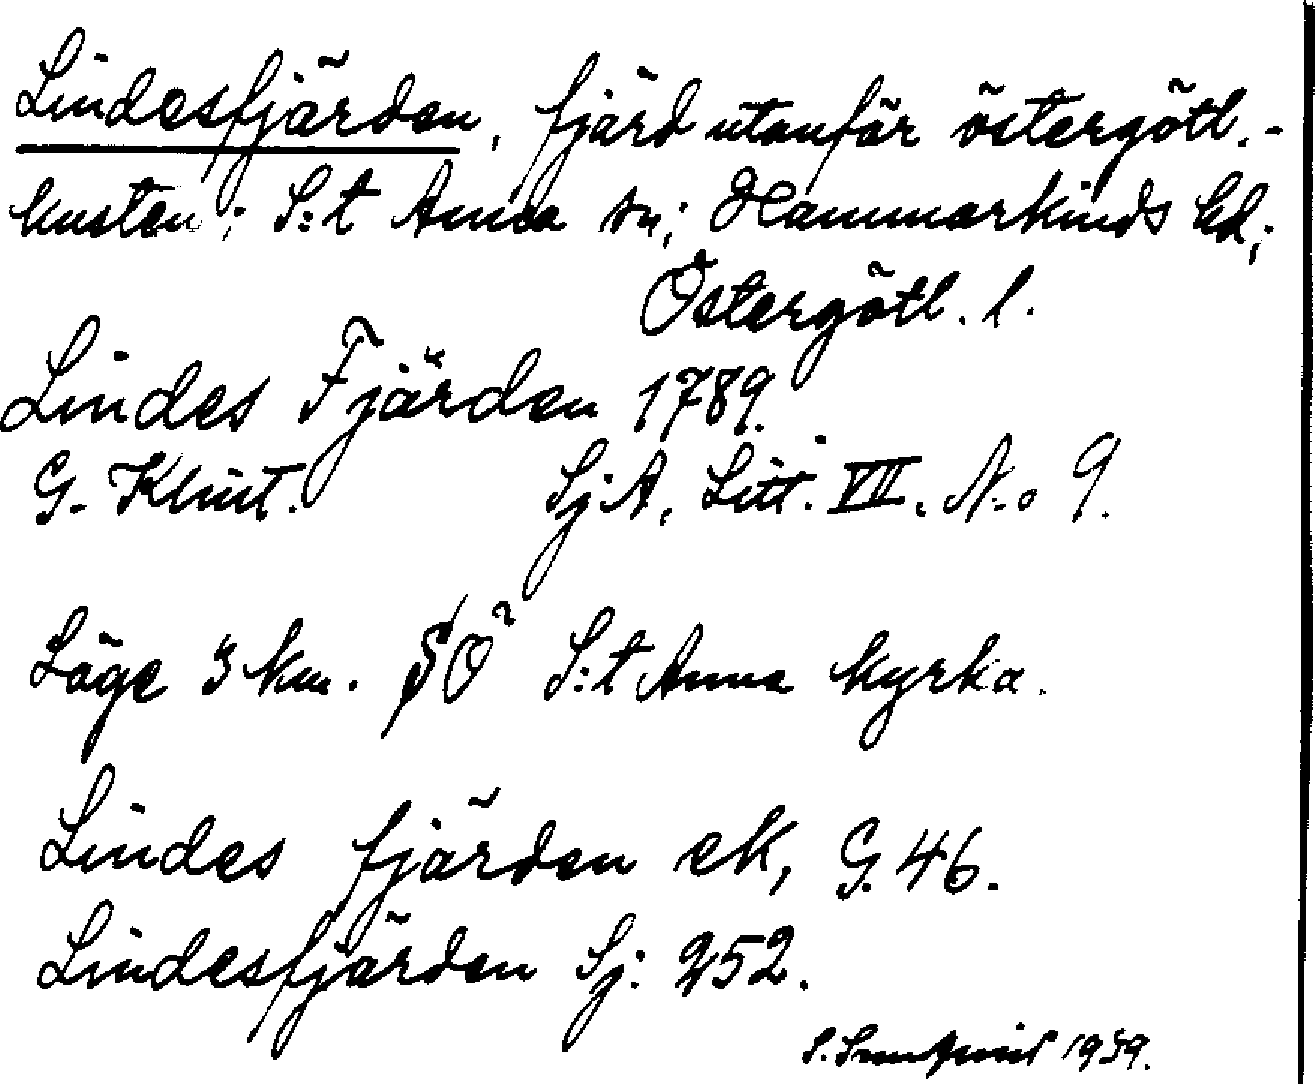 Lindesfjärden, fjärd utanför östergötl.-
kusten; S:t Anna sn; Hammarkinds hd;
Östergötl. l.
Lindes Fjärden 1789.
G. Klint. SjA, Litt. VII. No 9.
Läge 3 km. SO S:t Anna kyrka.
Lindes fjärden ek, G. 46.
Lindesfjärden Sj: 252.
S. 1939.